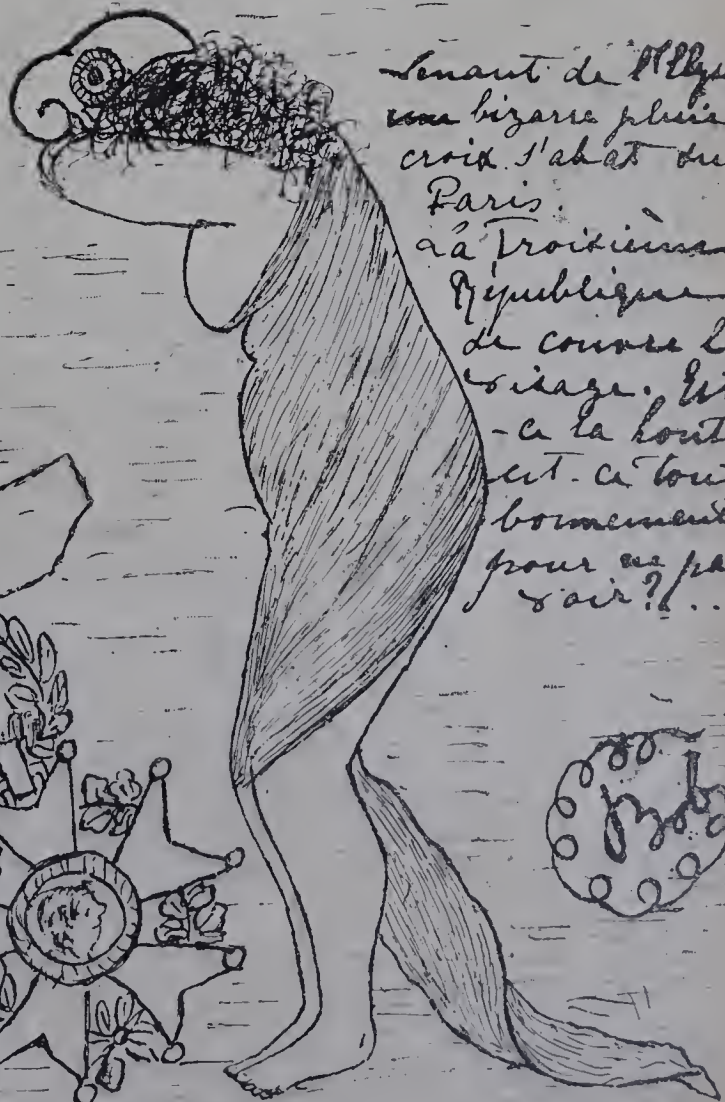 Venant de l'Elys
une bizarre pluie
croix s'abat sur
Paris.
La Troisième
République
se couvre l
visage. Est
-ce la hont
est-ce tou
bonnement
pour ne pa
voir?...